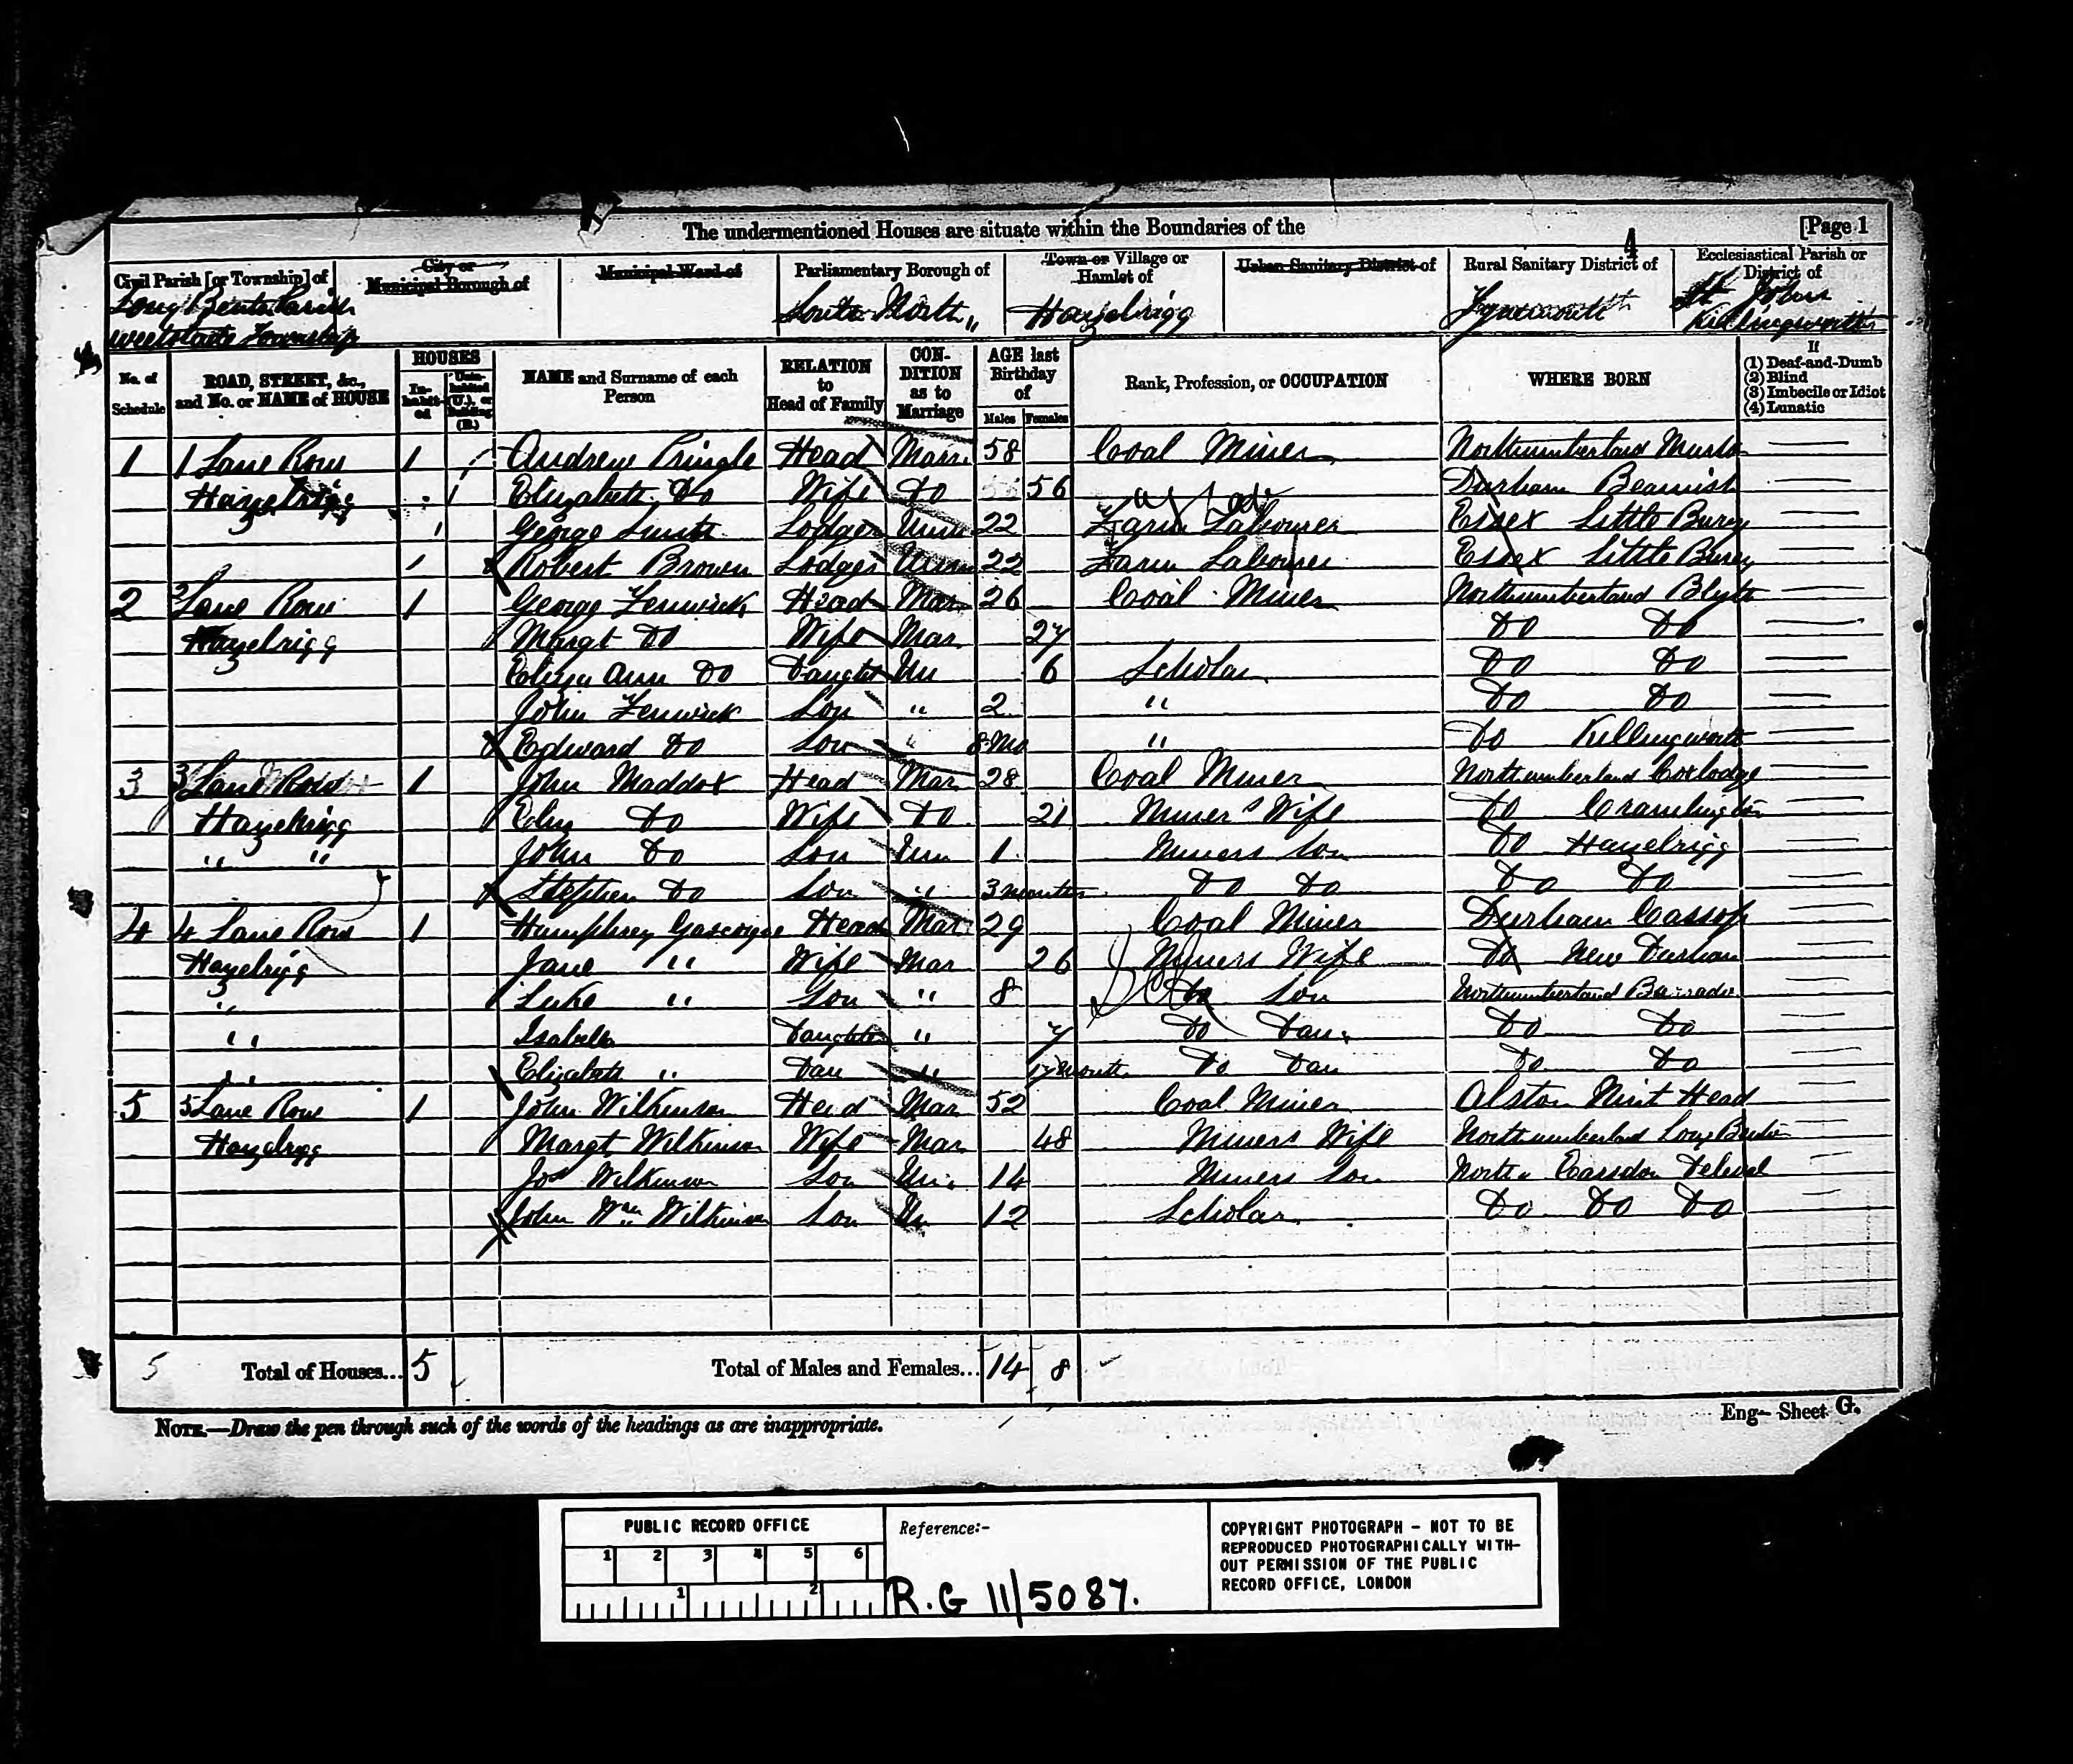 The undermentioned Houses are situate within the Boundaries of the [Page 1
4
Civil Parish [or Township] of City or Municipal Borough of Municipal Ward of Parliamentary Borough of Town or Village or Hamlet of Urban Sanitary District of Rural Sanitary District of Ecclesiastical Parish or District of
Long Benton Parish South North „ Hazelrigg Tynemouth St Johns
Township Killingworth
No. of Schedule ROAD, STREET, &c., and No. or NAME of HOUSE HOUSES Inhabited Uninhabited (U.), or Building (B.) NAME and Surname of each Person RELATION to Head of Family CONDITION as to Marriage AGE last Birthday of Males Females Rank, Profession, or OCCUPATION WHERE BORN If (1) Deaf-and-Dumb (2) Blind (3) Imbecile or Idiot (4) Lunatic
1 1 Lane Row 1 Andrew Pringle Head Marr. 58 Coal Miner Northumberland
Hazelrigg Elizabeth Do Wife Do 56 Durham Beamish
George Smith Lodger Unm 22 Farm Labourer Essex Little Bury
Robert Brown Lodger Unm 22 Farm Labourer Essex Little Bury
2 2 Lane Row 1 George Fenwick Head Mar. 26 Coal Miner Northumberland Blyth
Hazelrigg Margt Do Wife Mar. 27 Do Do
Eliza Ann Do Daught Un 6 Scholar Do Do
John Fenwick Son " 2 " Do Do
Edward Do Son " 8 Mo " Do Killingworth
3 3 Lane Row 1 John Maddox Head Mar. 28 Coal Miner Northumberland Coxlodge
Hazelrigg Do Wife Do 21 Miner's Wife Do Cramlington
" " John Do Son Un 1 Miners Son Do Hazelrigg
Stephen Do Son " 3 months Do Do Do Do
4 4 Lane Row 1 Humphrey Gascoigne Head Mar. 29 Coal Miner Durham Cassop
Hazelrigg Jane " Wife Mar 26 Miners Wife Do New Durham
" Luke " Son " 8 Do Son Northumberland
" Isabella Daughter " 7 Do Dau. Do Do
" Elizabeth " Dau " Do Dau Do Do
5 5 Lane Row 1 John Wilkinson Head Mar 52 Coal Miner Alston Head
Hazelrigg Margt Wilkinson Wife Mar. 48 Miners Wife Northumberland Long Benton
Jos Wilkinson Son Un. 14 Miners Son North „ Earsdon
John Wm Wilkinson Son Un 12 Scholar Do Do Do
5 Total of Houses... 5 Total of Males and Females... 14 8
NOTE.—Draw the pen through such of the words of the headings as are inappropriate.
Eng— Sheet G.
PUBLIC RECORD OFFICE
1 2 3 4 5 6
1 2
Reference:-
R.G 11/5087.
COPYRIGHT PHOTOGRAPH - NOT TO BE
REPRODUCED PHOTOGRAPHICALLY WITH-
OUT PERMISSION OF THE PUBLIC
RECORD OFFICE, LONDON